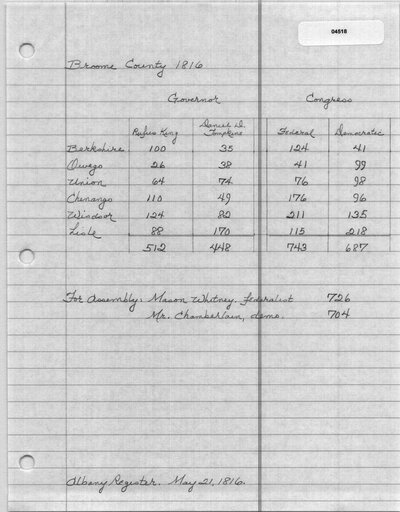 04518
Broome County 1816
Governor Congress
Rufus King Daniel D. Tompkins Federal Democratic
Berkshire 100 35 124 41
Owego 26 38 41 99
Union 64 74 76 98
Chenango 110 49 176 96
Windsor 124 82 211 135
Lisle 88 170 115 218
512 448 743 687
For Assembly: Mason Whitney, Federalist 726
Mr. Chamberlain, demo. 704
Albany Register. May 21, 1816.